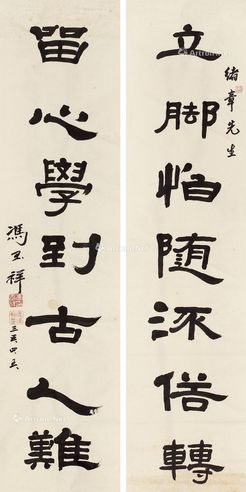 緒章先生
立脚怕随流俗轉
留心學到古人難
馮玉祥